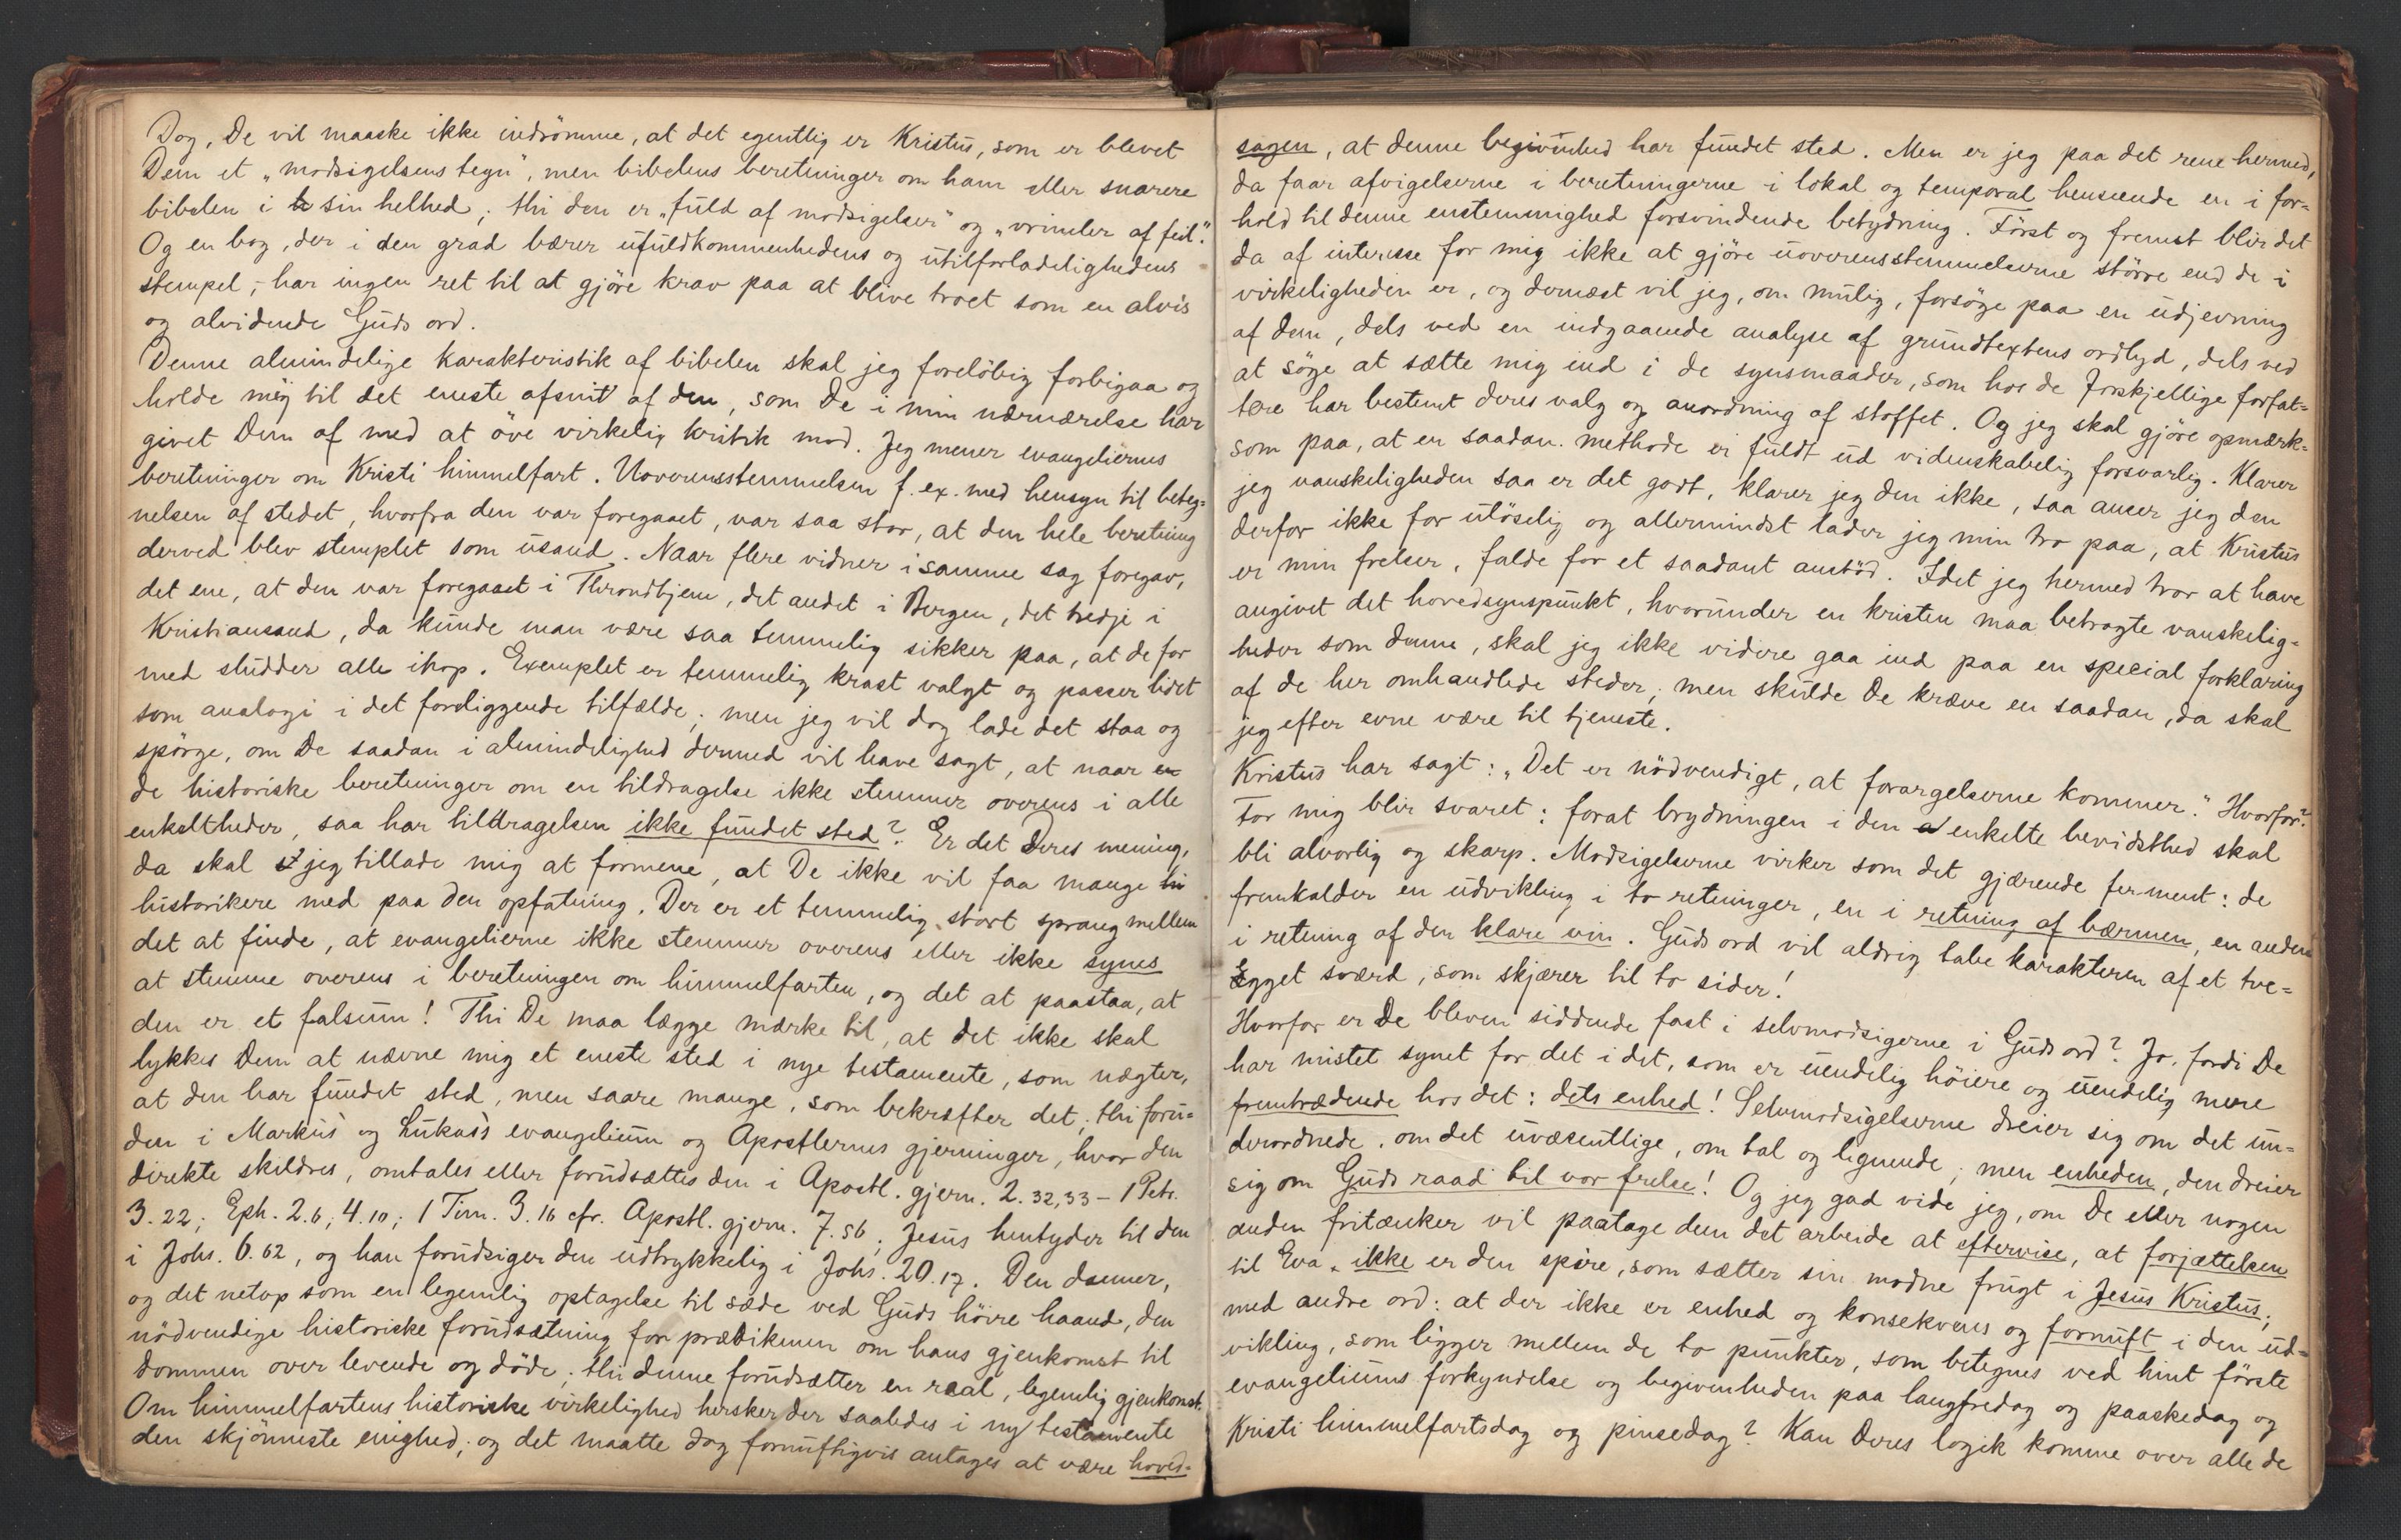 Dog, De vil maaske ikke indrömme, at det egentlig er Kristus, som er blevet
Dem et „modsigelsens tegn", men bibelens beretninger om ham eller snarere
bibelen i sin helhed; thi den er „fuld af modsigelser" og „vrimler af feil".
Og en bog, der i den grad bærer ufuldkommenhedens og utilforladelighedens
stempel, har ingen ret til at gjöre krav paa at blive troet som en alvis
og alvidende Guds ord.
Denne almindelige karakteristik af bibelen skal jeg forelöbig forbigaa og
holde mig til det eneste afsnit af den, som De i min nærværelse har
givet Dem af med at öve virkelig kritik mod. Jeg mener evangeliernes
beretninger om Kristi himmelfart. Uoverensstemmelsen f. ex. med hensyn til beteg=
nelsen af stedet, hvorfra den var foregaaet, var saa stor, at den hele beretning
derved blev stemplet som usand. Naar flere vidner i samme sag foregav,
det ene, at den var foregaaet i Throndhjem, det andet i Bergen, det tredje i
Kristiansand, da kunde man være saa temmelig sikker paa, at de for
med sludder alle ihop. Exemplet er temmelig krast valgt og passer lidet
som analogi i det foreliggende tilfælde; men jeg vil dog lade det staa og
spörge, om De saadan i almindelighed dermed vil have sagt, at naar
de historiske beretninger om en tildragelse ikke stemmer overens i alle
enkeltheder, saa har tildragelsen ikke fundet sted? Er det Deres mening,
da skal jeg tillade mig at formene, at De ikke vil faa mange
historikere med paa den opfatning. Der er et temmelig stort sprang mellem
det at finde, at evangelierne ikke stemmer overens eller ikke synes
at stemme overens i beretningen om himmelfarten, og det at paastaa, at
den er et falsum! Thi De maa lægge mærke til, at det ikke skal
lykkes Dem at nævne mig et eneste sted i nye testamente, som nægter,
at den har fundet sted, men saare mange, som bekræfter det; thi foru=
den i Markus og Lukas's evangelium og Apostlernes gjerninger, hvor den
direkte skildres, omtales eller forudsættes den i Apostl. gjern. 2. 32,33 – 1 Petr.
3. 22; Eph. 2.6; 4.10; 1 Tim. 3. 16 cfr. Apostl. gjern. 7. 56; Jesus hentyder til den
i Johs. 6. 62, og han forudsiger den udtrykkelig i Johs. 20. 17. Den danner,
og det netop som en legemlig optagelse til sæde ved Guds höire haand, den
nödvendige historiske forudsætning for prædikenen om hans gjenkomst til
dommen over levende og döde; thi denne forudsætter en real, legemlig gjenkomst.
Om himmelfartens historiske virkelighed hersker der saaledes i ny testamente
den skjönneste enighed; og det maatte dog fornuftigvis antages at være hoved=
sagen, at denne begivenhed har fundet sted. Men er jeg paa det rene hermed,
da faar afvigelserne i beretningerne i lokal og temporal henseende en i for=
hold til denne enstemmighed forsvindende betydning. Först og fremst blir det
da af interesse for mig ikke at gjöre uoverensstemmelserne större end de i
virkeligheden er, og dernæst vil jeg, om mulig, forsöge paa en udjevning
af dem, dels ved en indgaaende analyse af grundtextens ordlyd, dels ved
at söge at sætte mig ind i de synsmaader, som hos de forskjellige forfat=
tere har bestemt deres valg og anordning af stoffet. Og jeg skal gjöre opmærk=
som paa, at en saadan methode er fuldt ud videnskabelig forsvarlig. Klarer
jeg vanskeligheden saa er det godt, klarer jeg den ikke, saa anser jeg den
derfor ikke for ulöselig og allermindst lader jeg min tro paa, at Kristus
er min frelser, falde for et saadant anstöd. Idet jeg hermed tror at have
angivet det hovedsynspunkt, hvorunder en kristen maa betragte vanskelig=
heder som denne, skal jeg ikke videre gaa ind paa en special forklaring
af de her omhandlede steder; men skulde De kræve en saadan, da skal
jeg efter evne være til tjeneste.
Kristus har sagt: „Det er nödvendigt, at forargelserne kommer." Hvorfor?
For mig blir svaret: forat brydningen i den enkelte bevidsthed skal
bli alvorlig og skarp. Modsigelserne virker som det gjærende ferment: de
fremkalder en udvikling i to retninger, en i retning af bærmen, en anden
i retning af den klare vin. Guds ord vil aldrig tabe karakteren af et tve=
egget sværd, som skjærer til to sider!
Hvorfor er De bleven siddende fast i selvmodsigerne i Guds ord? Jo, fordi De
har mistet synet for det i det, som er uendelig höiere og uendelig mere
fremtrædende hos det: dets enhed! Selvmodsigelserne dreier sig om det un=
derordnede, om det uvæsentlige, om tal og lignende; men enheden, den dreier
sig om Guds raad til vor frelse! Og jeg gad vide jeg, om De eller nogen
anden fritænker vil paatage dem det arbeide at eftervise, at forjættelsen
til Eva ikke er den spire, som sætter sin modne frugt i Jesus Kristus;
med andre ord: at der ikke er enhed og konsekvens og fornuft i den ud=
vikling, som ligger mellem de to punkter, som betegnes ved hint förste
evangeliums forkyndelse og begivenheden paa langfredag og paaskedag og
Kristi himmelfartsdag og pinsedag? Kan Deres logik komme over alle de